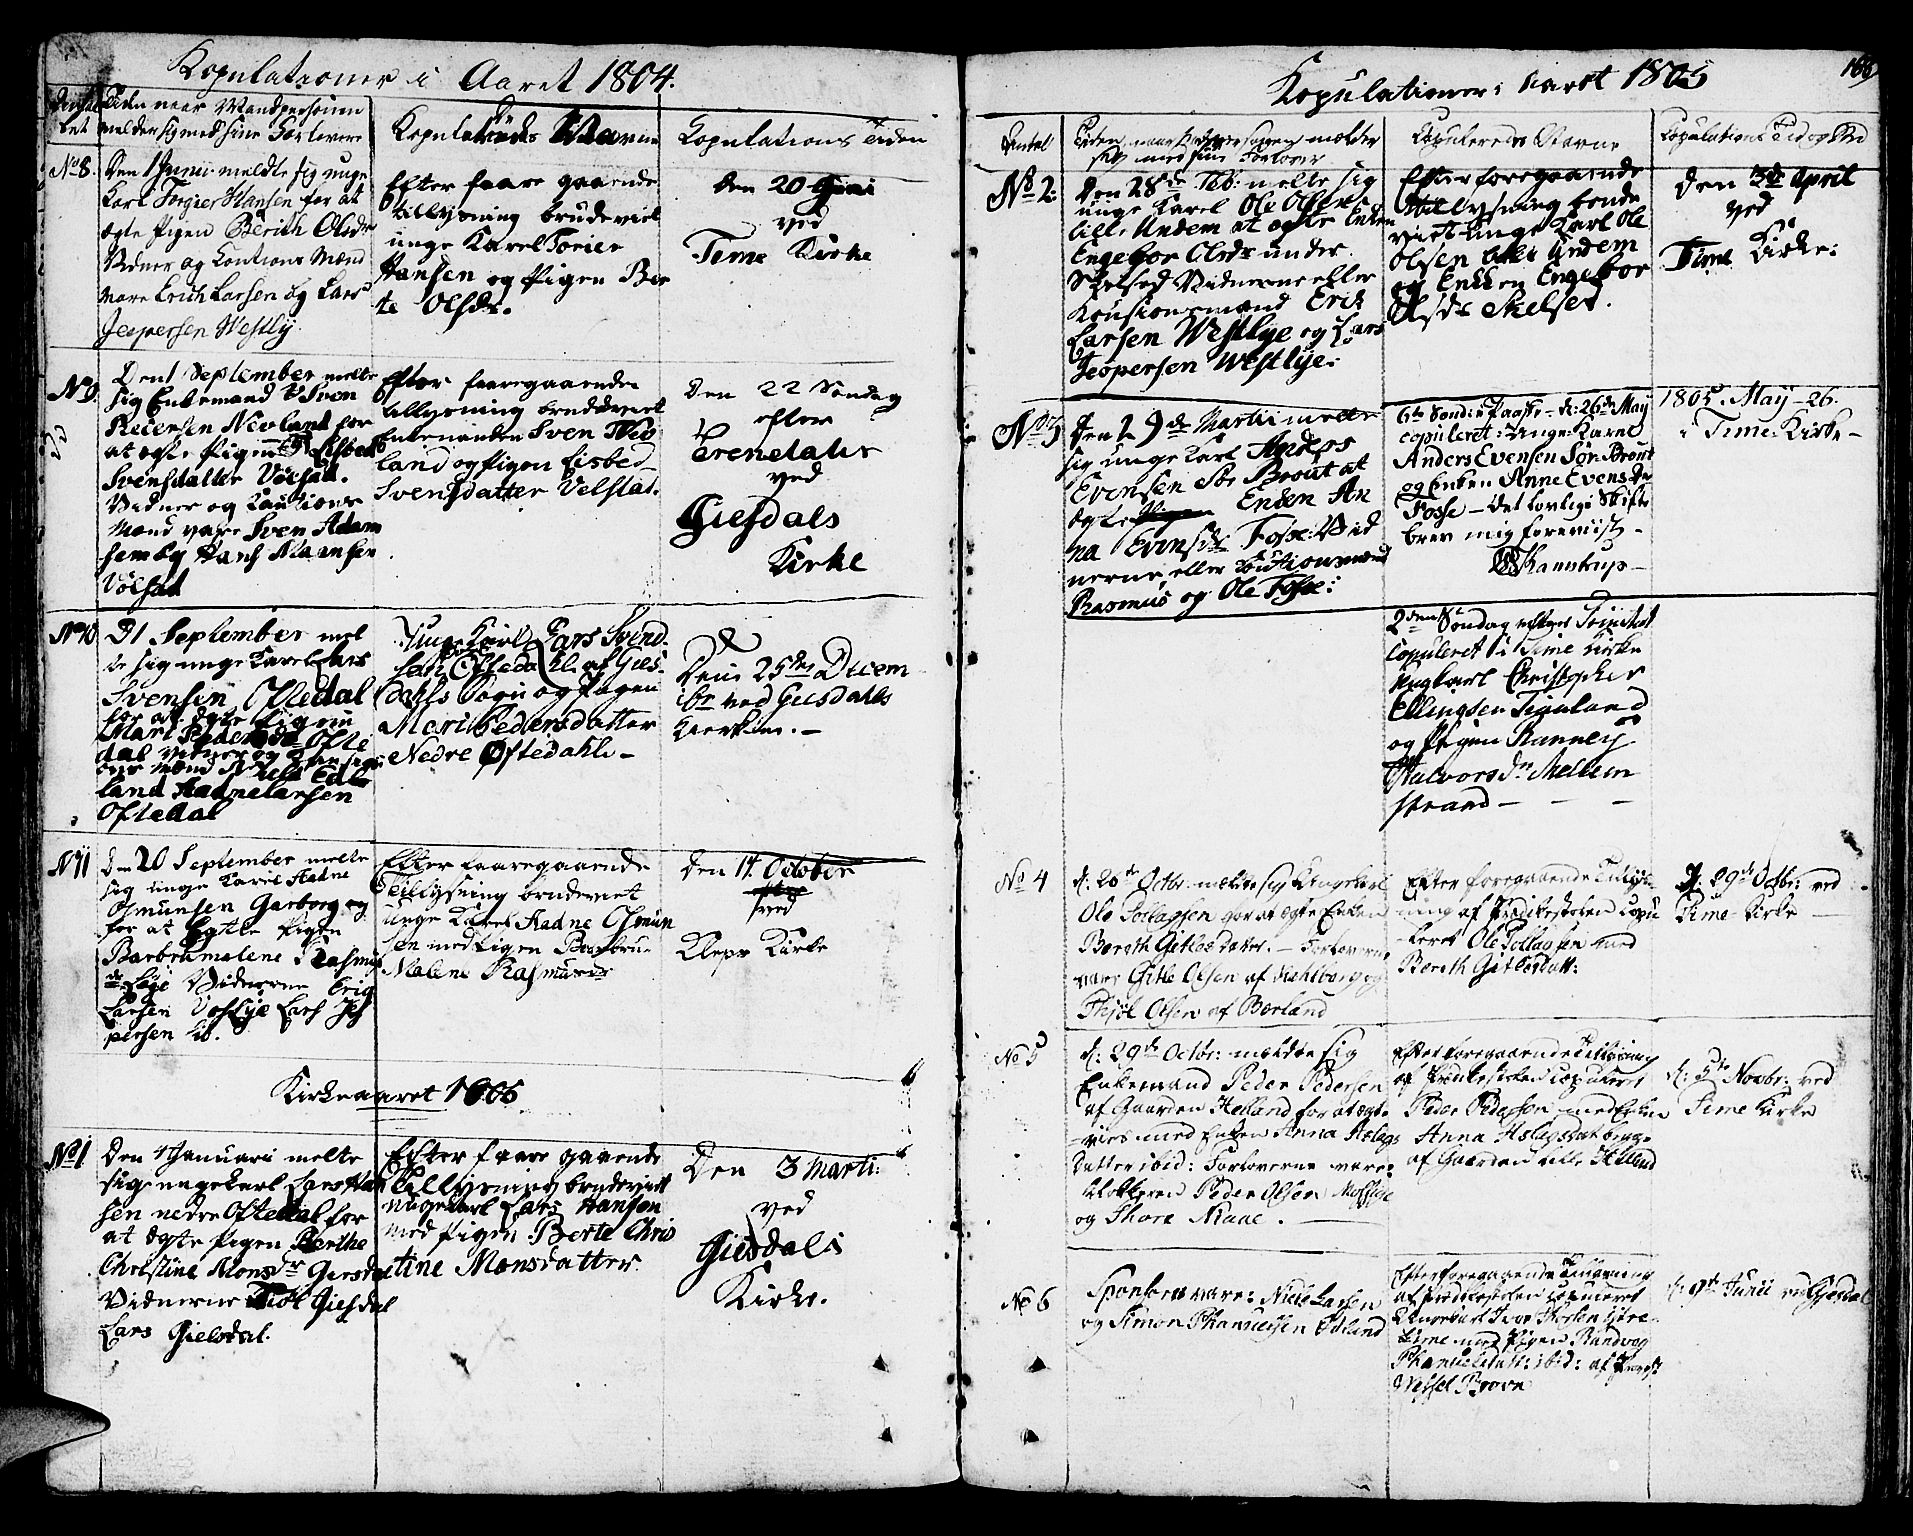 Kopulationer i Aaret 1804.
Tiden naar Mandpersonen
melder sig med sine Forlovere
Kopulations Tiden
No 8.
Den 1 Junii meldte sig unge
Karl Torgier Hansen for at
ægte Pigen Berith Olsdr
Vidner og Kautions Mænd
vare Erich Larsen og Lars
Jespersen Westly.
Efter faare gaaende
tillysning brudeviet
unge Karel Torier
Hansen og Pigen Ber
te Olsdr.
Den 20 Juni
ved
Time Kirke
No 9.
Den 1 September melte
sig Enkemand Sven
Neoland for
at ægte Pigen Lisbeth
Svensdatter Vølstad.
Vidner og Kautions
Mænd vare Sven Adam
sen og Hans Maansen
Vølstad
Efter faaregaaende
tillysning brudeviet
Enkemanden Sven Neo
land og Pigen Lisbed
Svensdatter Velstat.
Den 22 Søndag
efter
Trenetatis
ved
Giesdals
Kirke
No 10
D 1 September mel
te sig unge Karel Lars
Svensen Oftedal
for at ægte Pigen
Mari Pedersdr Ofte
dal Vidner og
Mænd Niels Ed
land Aadne Larsen
Oftedal
Unge Karl Lars Svend
sen Oftedahl af Gies-
dahls Sogn og Pigen
Mari Pedersdatter
Nedre Oftedahl –
Den 25de Decem
br ved Giesdahls
Kierken. –
No 11
Den 20 September melte
sig unge Karel Aadne
Osmunsen Garborg og
for at Egte Pigen
Barbramalene Rasmus
dr Lye Vidnerne Erig
Larsen Vestlye Lars Jes
persen ib.
Efter faaregaaende
Tillysning brudeviet
unge Karel Aadne Osmun
sen med Pigen Barbru
Malene Rasmusdr
Den 14. October
ved
Klepp Kirke
Kirkeaaret 1805
No 1
Den 4 Januari melte
sig ungekarl Lars Han
sen nedre Oftedal for
at ægte Pigen Berthe
Christine Monsdr Giesdal
Vidnerne Giesdal
Lars Gielsdal.
Efter faare gaaende
Tillysning brudeviet
ungekarl Lars Hanson
med Pigen Berte Chris
tine Monsdatter
Den 3 Marti:
ved
Giesdals
Kirke.
Kopulationer i Aaret 1805
166
Antal
Tiden, naar Mandspersonen mælder
sig med sine Forlover
Copulerede Navne
Copulations Tid og Sted
No 2:
Den 28de Feb: melte sig
unge Karel Ole Olsen
lille Undem at egte Enken
Engebor Olsdr undre
Skelsed Vidnerne eller
Kousionsmænd Erik
Larsen Westlye og Lars
Jespersen Westlye:
Efter foregaaende
tillysning
viet unge Karl Ole
Olsen lille Undem
og Enken Engebor
Olsdr Skelset.
Den 3de April
ved
Time Kirke:
No 3
Den 29de Martii melte
sig unge Karl Andos
Evensen Sør Brout at
ægte Enken An
na Evensdr Fosse Vid
nerne, eller Koutionsmænd
Rasmus og Ole Fosse:
6te Sønd: e Paaske – d: 26de May
copuleret: Unge Karel
Anders Evensen Sør Brout
og Enken Anne Evens Dr
Fosse – Det lovlige Skifte
brev mig foreviist –
Kamstrup –
1805. May – 26.
i Time Kirke –
2den Søndag efter Trinitat
copuleret i Time Kirke
Ungkarl Christopher
Ellingsen Tegaland
og Pigen Ranney
Halvorsdr Mellem
strand –
No 4
d: 26de Octbr: mældte sig Ungekarl
Ole Tollagsen for at ægte Enken
Bereth Gitlesdatter. – Forloverne
vare Gitle Olsen af Hæhlberg og
Thjøl Olsen af Borland
Efter foregaaende Tillys-
ning af Prædikestolen copu
leret Ole Tollagsen med
Bereth Gitlesdatt:
d: 29de Octbr: ved
Time Kirke
No 5
d: 29de Octbr: mældte sig
Enkemand Peder Pedersen
af Gaarden Helland for at ægte-
vies med Enken Anna Aslags
Datter ibid: Forloverne vare:
Klokkeren Peder Olsen Mossige
og Thore Niaae.
Efter foregaaende Tillysning
af Prædikestolen copuleret
Peder Pederson med Enken
Anna Aslagsdat: begge
af Gaarden Lille Helland
d: 5te Novbr: ved
Time Kirke
No 6
Sponsores vare: Niels Larsen
og Simon Phanuelsen Edland
Efter foregaaende Tillysning
af Prædikestolen copuleret
Ungekarl Ivar Thorsen
Time med Pigen Randvog
Phanuelsdatt: ibid: af Provst
Wessel Brovn
d: 9de Junii ved Gjesdal